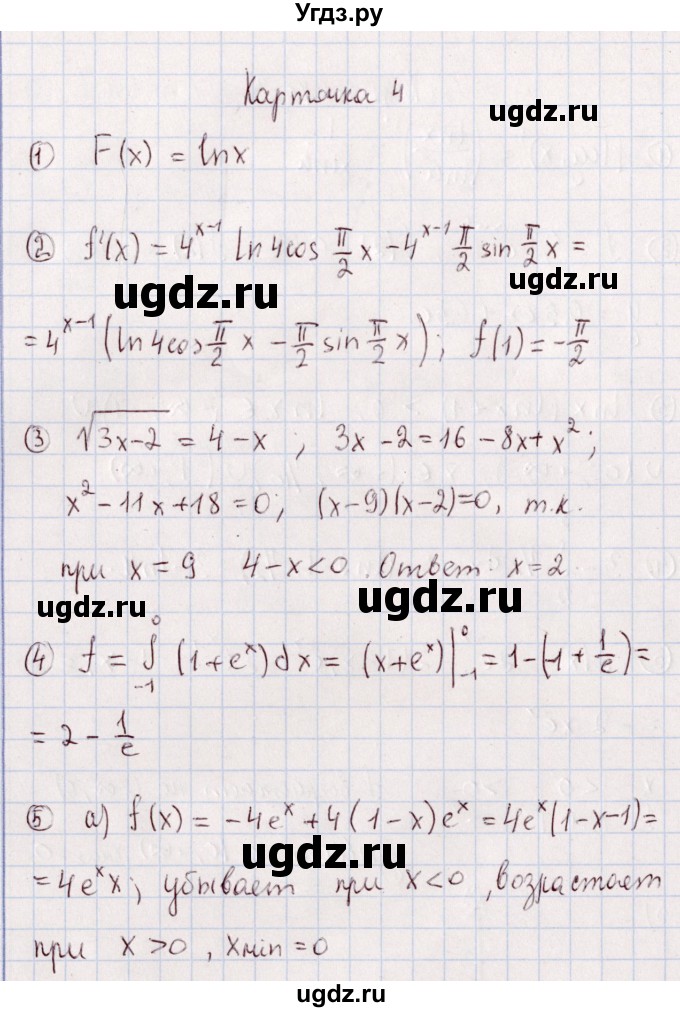 Угдз.ру
Карточка 4
ugdz.ru
① F(x) = lnx
② f'(x) = 4^{x-1} ln4cos π/2 x - 4^{x-1} π/2 sin π/2 x =
ugdz.ru
ugdz.ru
= 4^{x-1} (ln4cos π/2 x - π/2 sin π/2 x); f(1) = -π/2
③ √(3x-2) = 4-x ; 3x-2 = 16-8x+x²;
x²-11x+18=0; (x-9)(x-2)=0, т.к.
при x = 9 4-x<0. Ответ: x=2.
ugdz.ru
ugdz.ru
④ f = ∫_{-1}^{0} (1+e^x)dx = (x+e^x)|_{-1}^{0} = 1-(-1+1/e) =
= 2 - 1/e
⑤ а) f(x) = -4e^x + 4(1-x)e^x = 4e^x(1-x-1) =
ugdz.ru
= 4e^x x; убывает при x<0, возрастает
при x>0, xmin=0
ugdz.ru
ugdz.ru